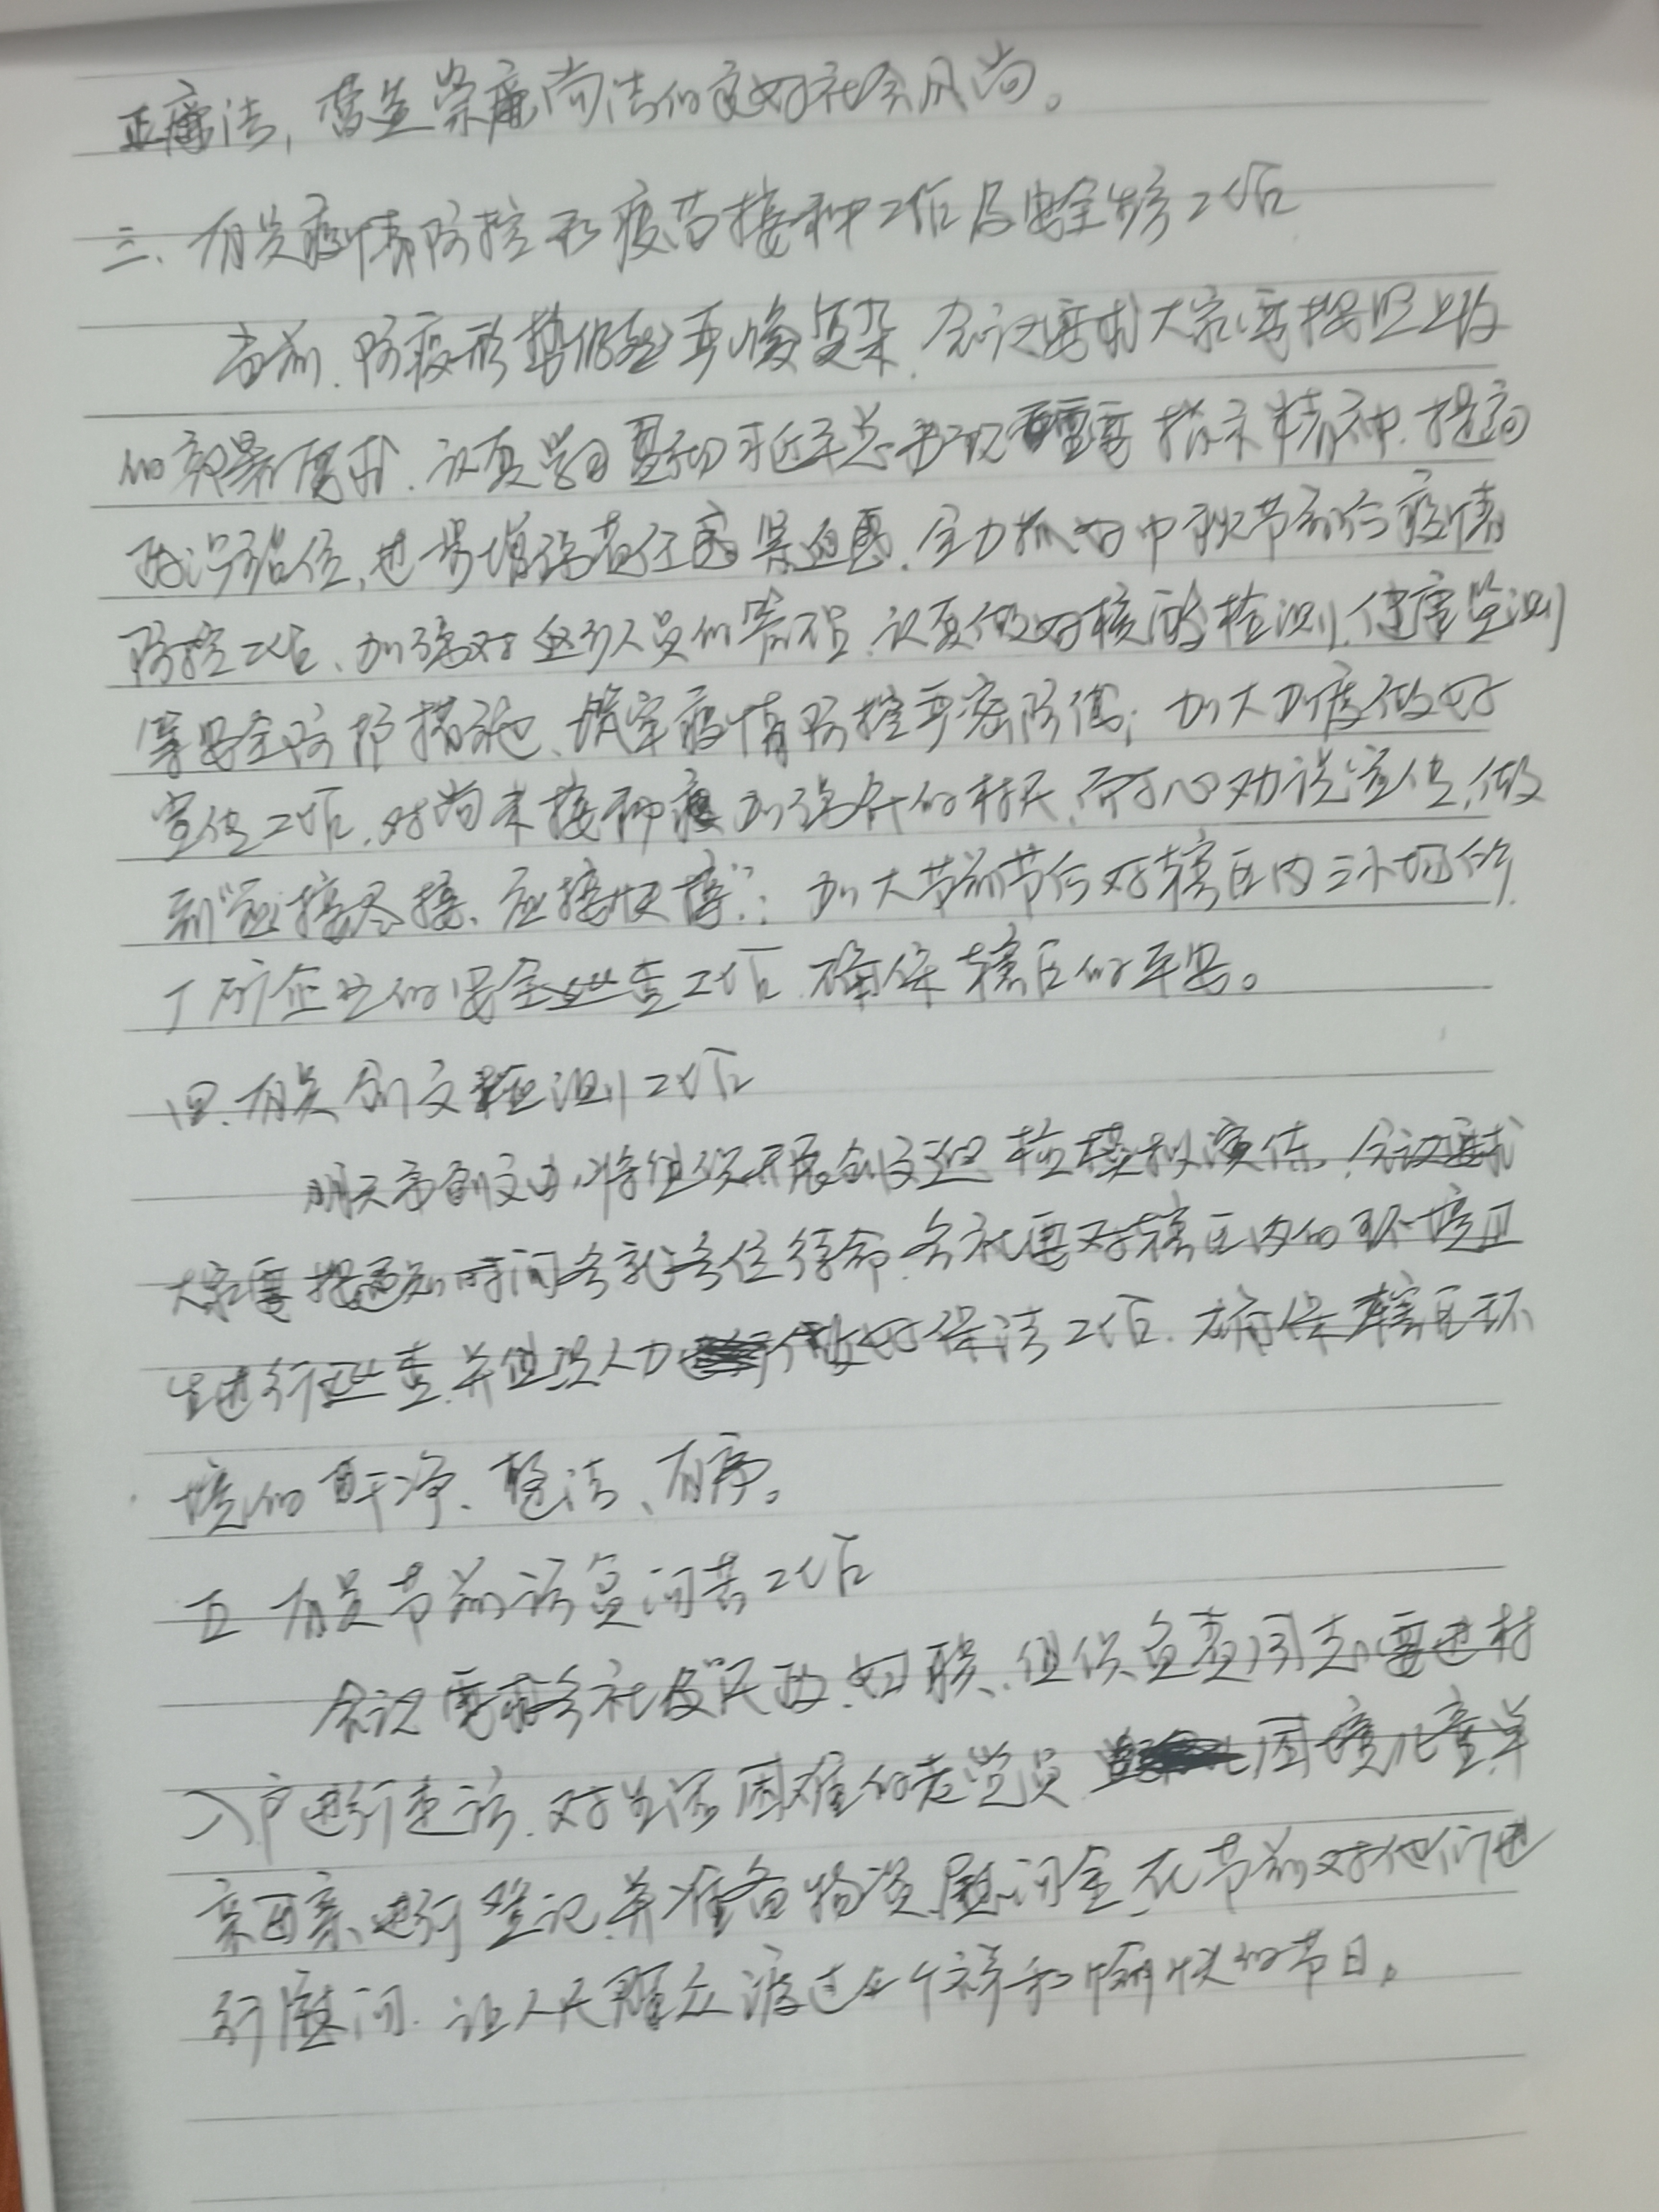 正廉洁，营造崇廉尚洁的良好社会风尚。
三、有关疫情防控和疫苗接种工作及安全生产工作
当前，防疫形势仍然严峻复杂，会议要求大家要按照上级
的部署要求，认真学习贯彻习近平总书记重要指示精神，提高
政治站位，进一步增强责任感紧迫感，全力抓好中秋节前后疫情
防控工作、加强对返乡人员的管理，认真做好核酸检测、健康监测
等安全防护措施、筑牢疫情防控严密防线；加大力度做好
宣传工作，对尚未接种加强针的村民，耐心劝说宣传，做
到“应接尽接、应接快接”；加大节前节后对辖区内三小场所
厂矿企业的安全巡查工作，确保辖区的平安。
四、有关创文检测工作
明天市创文办，将组织开展创文巡检模拟演练，会议要求
大家要按通知时间各就各位待命，各社要对辖区内的环境卫
生进行巡查，并组织人力做好保洁工作，确保辖区环
境的干净、整洁、有序。
五、有关节前访贫问苦工作
会议要求各社及民政、妇联、组织负责同志，要进村
入户进行走访，对生活困难的老党员、困境儿童、单
亲母亲、进行登记，并准备物资、慰问金，在节前对他们进
行慰问，让人民群众渡过一个祥和愉快的节日。